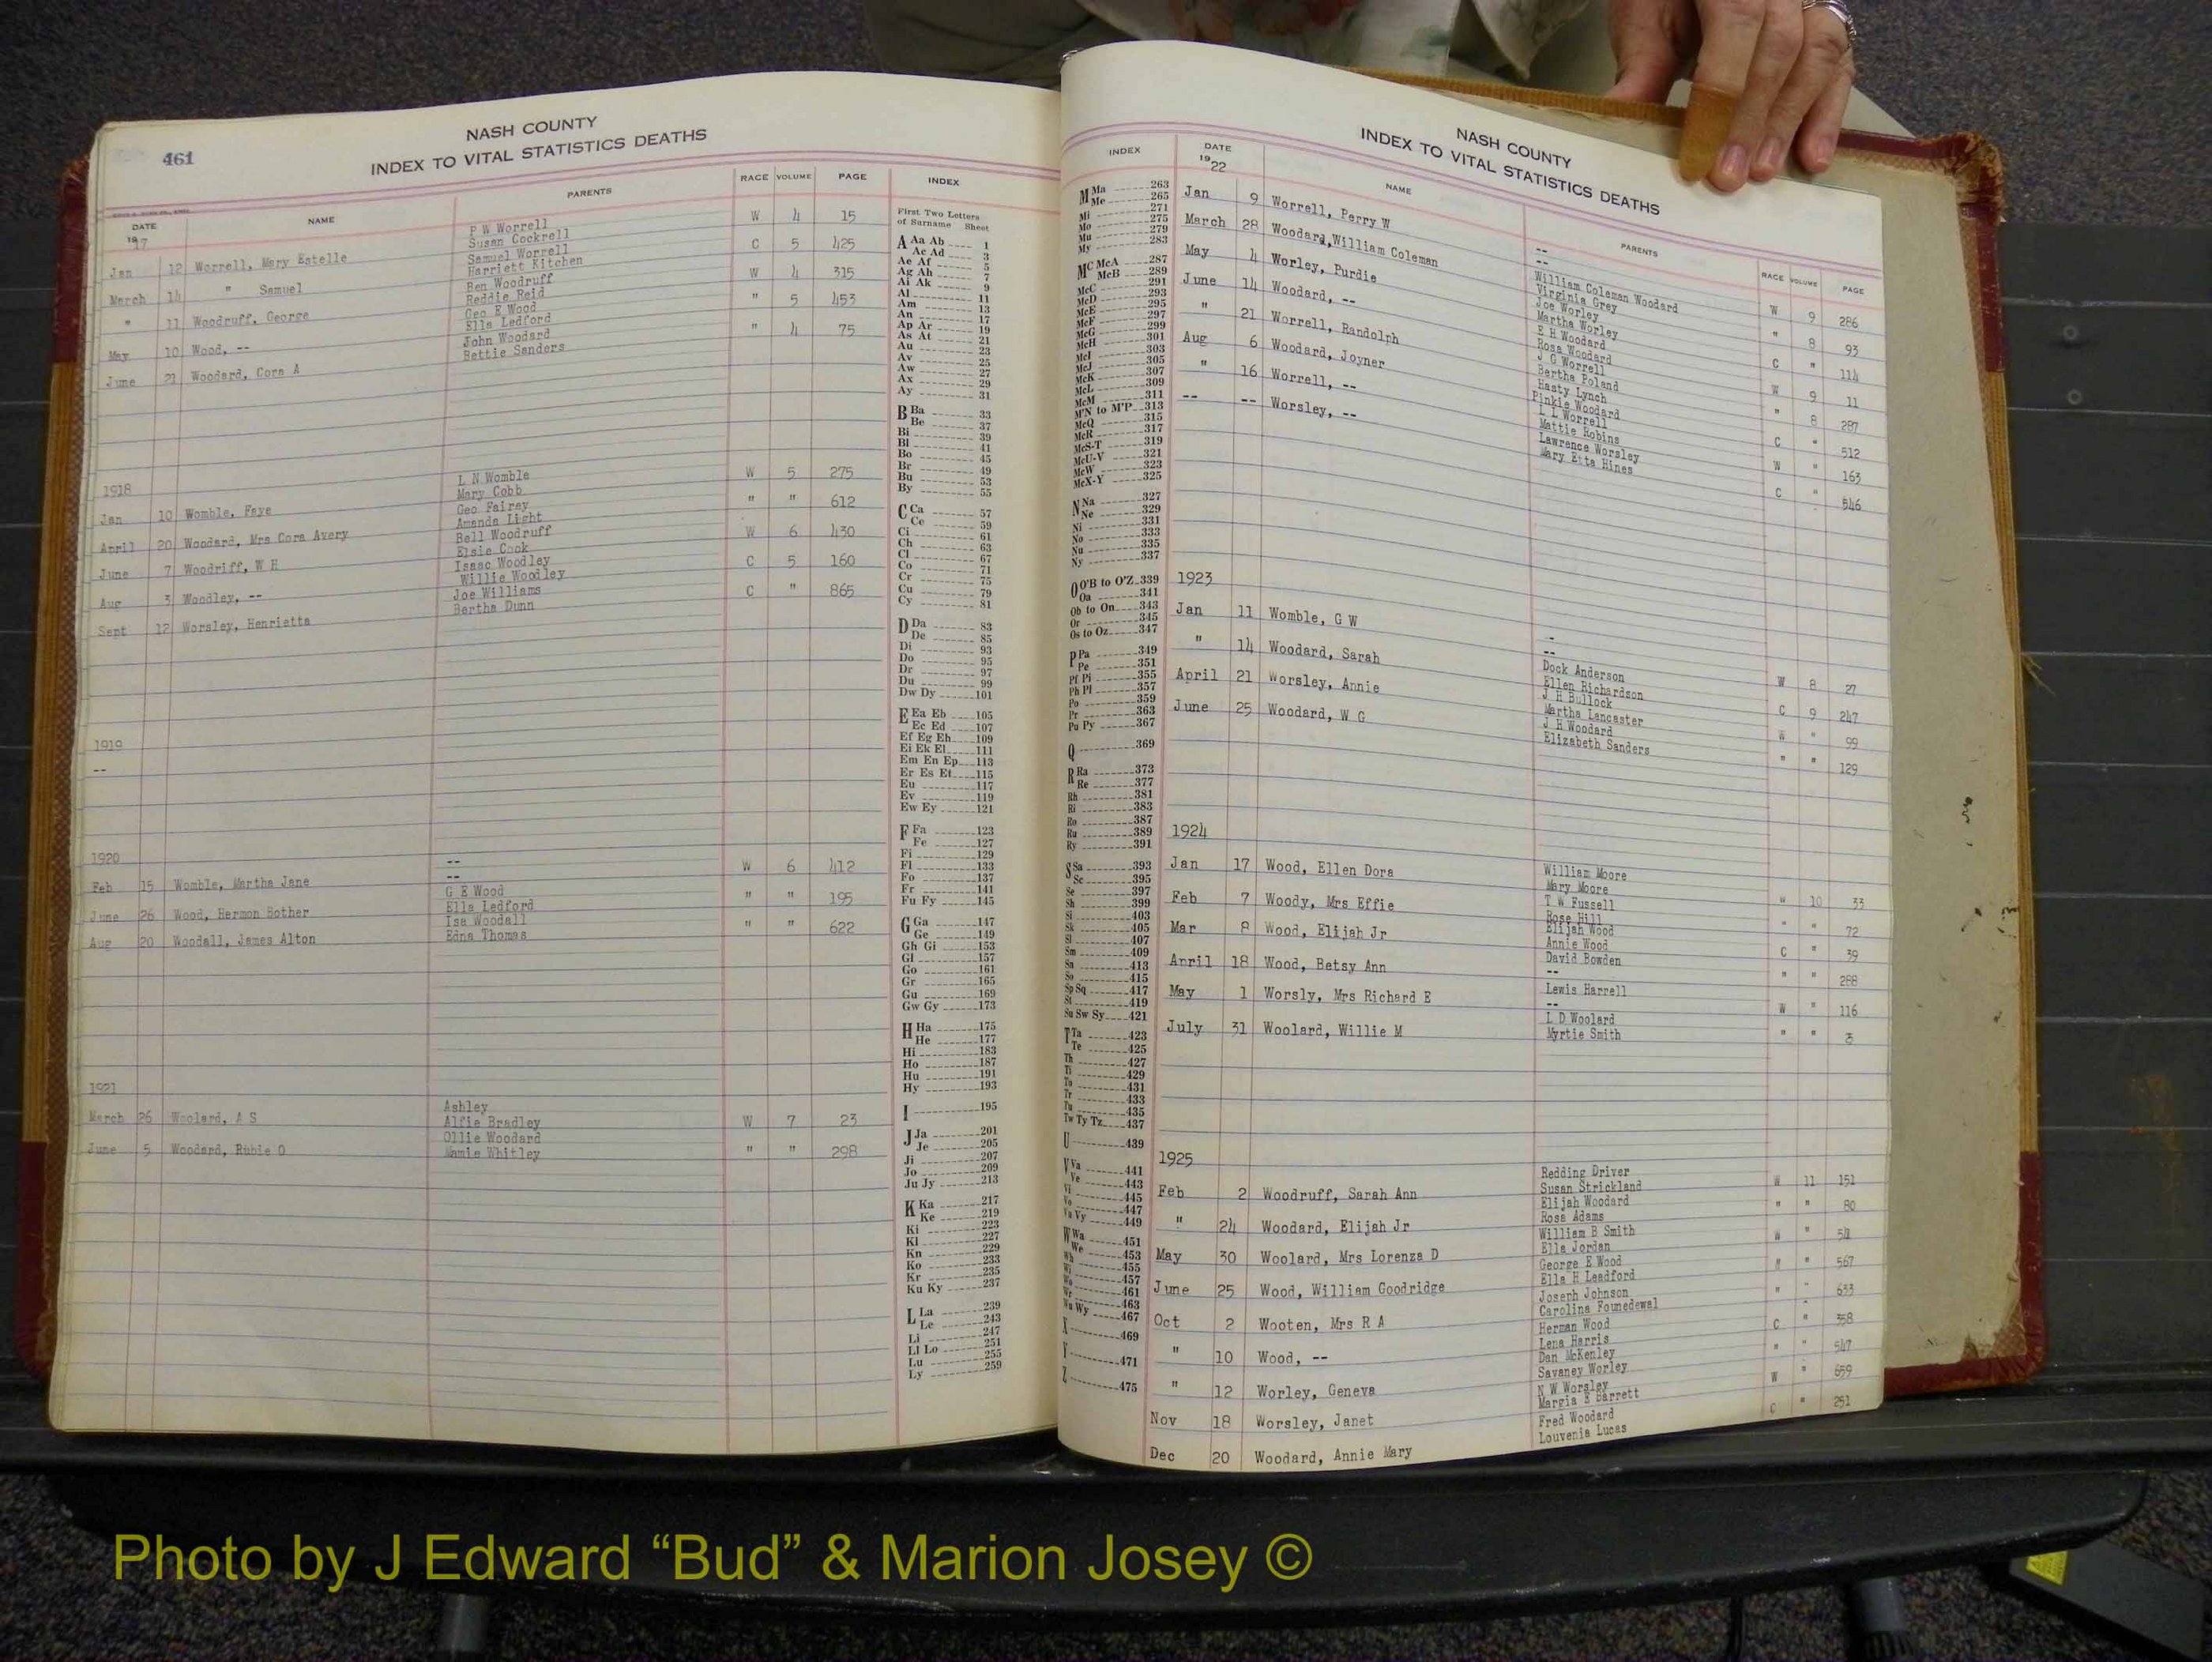 461
NASH COUNTY
INDEX TO VITAL STATISTICS DEATHS
DATE NAME PARENTS RACE VOLUME PAGE
1917
Jan 12 Worrell, Mary Estelle P W Worrell W 4 15
Susan Cockrell
March 14 " Samuel Samuel Worrell C 5 425
Harriett Kitchen
" 11 Woodruff, George Ben Woodruff W 4 315
Reddie Reid
May 10 Wood, -- Geo E Wood " 5 453
Ella Ledford
June 21 Woodard, Cora A John Woodard " 4 75
Bettie Sanders
1918
Jan 10 Womble, Faye L N Womble W 5 275
Mary Cobb
April 20 Woodard, Mrs Cora Avery Geo Fairey " " 612
Amanda Light
June 7 Woodriff, W H Bell Woodruff W 6 430
Elsie Cook
Aug 3 Woodley, -- Isaac Woodley C 5 160
Willie Woodley
Sept 12 Worsley, Henrietta Joe Williams C " 865
Bertha Dunn
1919
--
1920
Feb 15 Womble, Martha Jane -- W 6 412
--
June 26 Wood, Hermon Bother G E Wood " " 195
Ella Ledford
Aug 20 Woodall, James Alton Isa Woodall " " 622
Edna Thomas
1921
March 26 Woolard, A S Ashley W 7 23
Alfie Bradley
June 5 Woodard, Rubie O Ollie Woodard " " 298
Mamie Whitley
INDEX
First Two Letters
of Surname Sheet
A Aa Ab 1
Ac Ad 3
Ae Af 5
Ag Ah 7
Ai Ak 9
Al 11
Am 13
An 17
Ap Ar 19
As At 21
Au 23
Av 25
Aw 27
Ax 29
Ay 31
B Ba 33
Be 37
Bi 39
Bl 41
Bo 45
Br 49
Bu 53
By 55
C Ca 57
Ce 59
Ci 61
Ch 63
Cl 67
Co 71
Cr 75
Cu 79
Cy 81
D Da 83
De 85
Di 93
Do 95
Dr 97
Du 99
Dw Dy 101
E Ea Eb 105
Ec Ed 107
Ef Eg Eh 109
Ei Ek El 111
Em En Ep 113
Er Es Et 115
Eu 117
Ev 119
Ew Ey 121
F Fa 123
Fe 127
Fi 129
Fl 133
Fo 137
Fr 141
Fu Fy 145
G Ga 147
Ge 149
Gh Gi 153
Gl 157
Go 161
Gr 165
Gu 169
Gw Gy 173
H Ha 175
He 177
Hi 183
Ho 187
Hu 191
Hy 193
I 195
J Ja 201
Je 205
Ji 207
Jo 209
Ju Jy 213
K Ka 217
Ke 219
Ki 223
Kl 227
Kn 229
Ko 233
Kr 235
Ku Ky 237
L La 239
Le 243
Li 247
Ll Lo 251
Lu 255
Ly 259
INDEX
M Ma 263
Me 265
Mi 271
Mo 275
Mu 279
My 283
MC McA 287
McB 289
McC 291
McD 293
McE 295
McF 297
McG 299
McH 301
McI 303
McJ 305
McK 307
McL 309
McM 311
M'N to M'P 313
McQ 315
McR 317
McS-T 319
McU-V 321
McW 323
McX-Y 325
N Na 327
Ne 329
Ni 331
No 333
Nu 335
Ny 337
O O'B to O'Z 339
Oa 341
Ob to On 343
Or 345
Os to Oz 347
P Pa 349
Pe 351
Pf Pi 355
Ph Pl 357
Po 359
Pr 363
Pu Py 367
Q 369
R Ra 373
Re 377
Rh 381
Ri 383
Ro 387
Ru 389
Ry 391
S Sa 393
Sc 395
Se 397
Sh 399
Si 403
Sk 405
Sl 407
Sm 409
Sn 413
So 415
Sp Sq 417
St 419
Su Sw Sy 421
T Ta 423
Te 425
Th 427
Ti 429
To 431
Tr 433
Tu 435
Tw Ty Tz 437
U 439
V Va 441
Ve 443
Vi 445
Vo 447
Vu Vy 449
W Wa 451
We 453
Wh 455
Wi 457
Wo 461
Wr 463
Wu Wy 467
X 469
Y 471
Z 475
NASH COUNTY
INDEX TO VITAL STATISTICS DEATHS
DATE NAME PARENTS RACE VOLUME PAGE
1922
Jan 9 Worrell, Perry W -- W 9 286
--
March 28 Woodard, William Coleman William Coleman Woodard " 8 93
Virginia Grey
May 4 Worley, Purdie Joe Worley C " 114
Martha Worley
June 14 Woodard, -- E H Woodard W 9 11
Rosa Woodard
" 21 Worrell, Randolph J G Worrell " 8 287
Bertha Poland
Aug 6 Woodard, Joyner Hasty Lynch C " 512
Pinkie Woodard
" 16 Worrell, -- L L Worrell W " 163
Mattie Robins
-- -- Worsley, -- Lawrence Worsley C " 546
Mary Etta Hines
1923
Jan 11 Womble, G W -- W 8 27
--
" 14 Woodard, Sarah Dock Anderson C 9 247
Ellen Richardson
April 21 Worsley, Annie J H Bullock W " 99
Martha Lancaster
June 25 Woodard, W G J H Woodard " " 129
Elizabeth Sanders
1924
Jan 17 Wood, Ellen Dora William Moore " 10 33
Mary Moore
Feb 7 Woody, Mrs Effie T W Fussell " " 72
Rose Hill
Mar 8 Wood, Elijah Jr Elijah Wood C " 39
Annie Wood
April 18 Wood, Betsy Ann David Bowden " " 288
--
May 1 Worsly, Mrs Richard E Lewis Harrell W " 116
--
July 31 Woolard, Willie M L D Woolard " " 3
Myrtie Smith
1925
Feb 2 Woodruff, Sarah Ann Redding Driver W 11 151
Susan Strickland
" 24 Woodard, Elijah Jr Elijah Woodard " " 80
Rosa Adams
May 30 Woolard, Mrs Lorenza D William B Smith W "
Ella Jordan
June 25 Wood, William Goodridge George E Wood " " 567
Ella H Leadford
Oct 2 Wooten, Mrs R A Joseph Johnson " " 633
Carolina
" 10 Wood, -- Herman Wood C " 358
Lena Harris
" 12 Worley, Geneva Dan McKenley " " 547
Savaney Worley
Nov 18 Worsley, Janet N W Worsley W " 659
Margia E Barrett
Dec 20 Woodard, Annie Mary Fred Woodard C " 251
Louvenia Lucas
Photo by J Edward “Bud” & Marion Josey ©